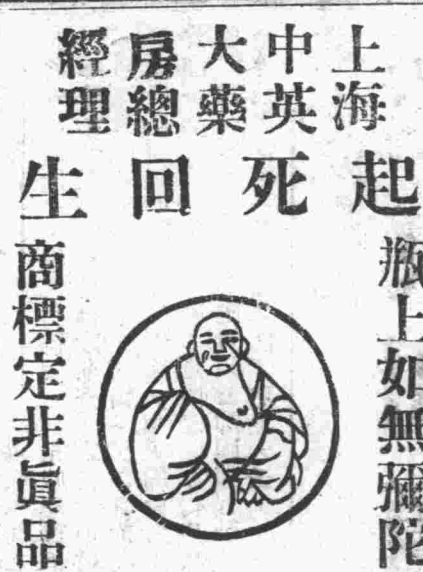 上海
中英
大藥
房總
經理
起死回生
瓶上如無彌陀
商標定非眞品